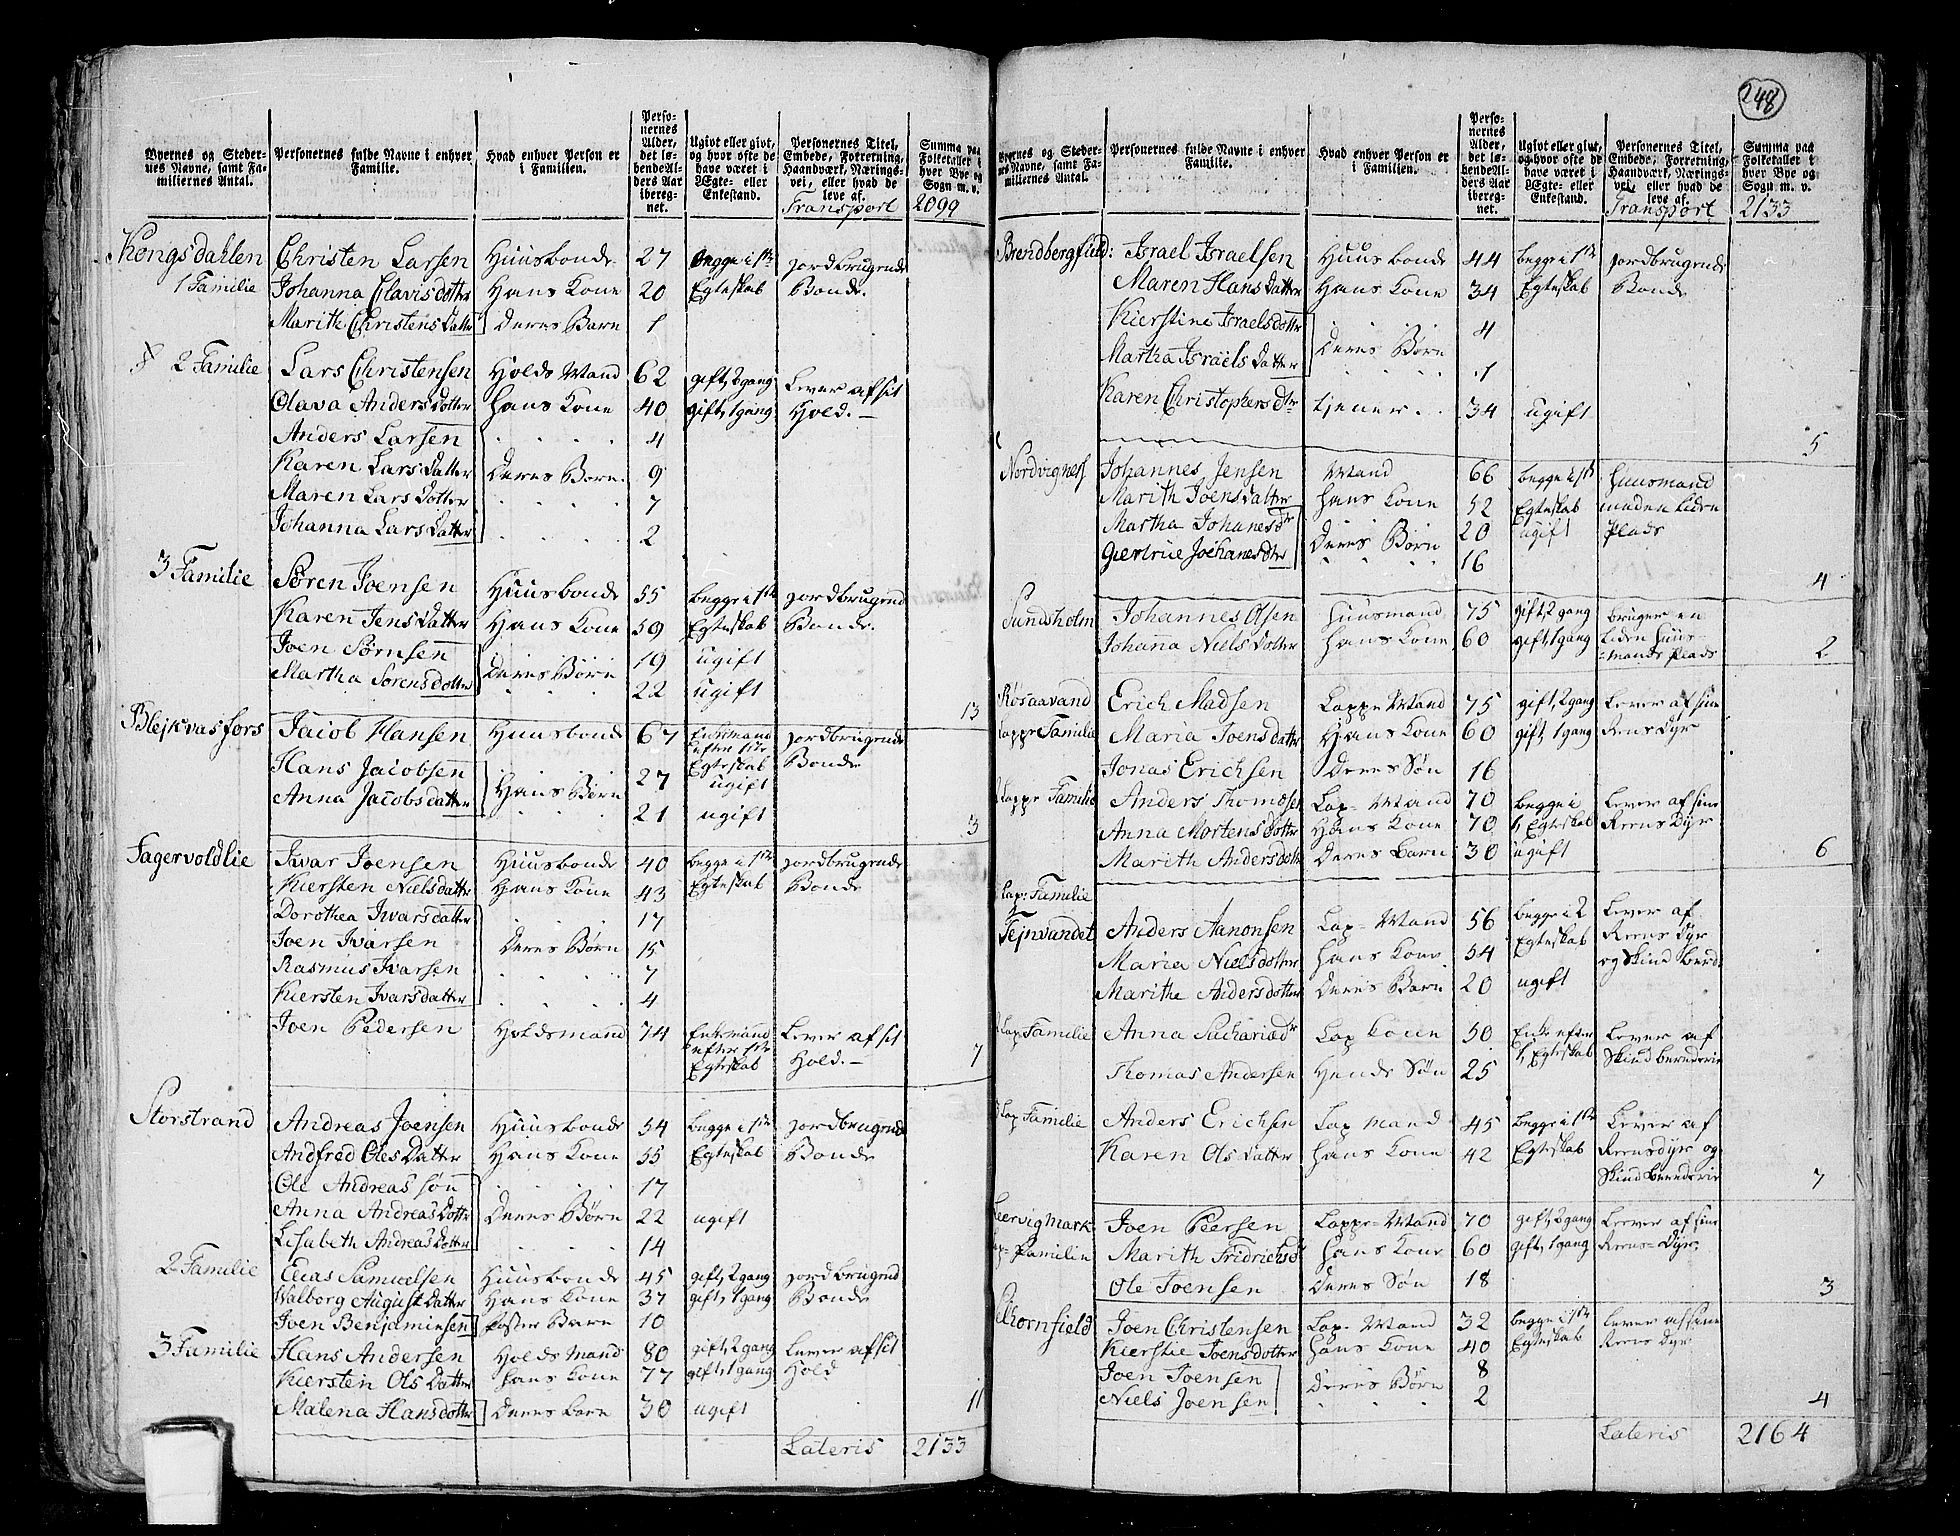 Byernes og Steder-
nes Navne, samt Fa-
miliernes Antal.
Personernes fulde Navne i enhver
Familie.
Hvad enhver Person er
i Familien.
Perso-
nernes
Alder,
det lø-
bendeAl-
ders Aar
ibereg-
net.
Ugivt eller givt,
og hvor ofte de
have været i
Ægte- eller
Enkestand.
Personernes Titel,
Embede, Forretning,
Haandværk, Nærings-
vei, eller hvad de
leve af.
Summa paa
Folketallet i
hver Bye og
Sogn m. v.
Transport 2099
Kongsdahlen Christen Larsen Huusbonde 27 begge i 1ste jordbrugende
1 Familie Johanna Clavisdotter Hans Kone 20 Egteskab Bonde.
Marith Christens Datter Deres Barn 1
2 Familie Lars Christensen Holds Mand 62 gift, 2 gang Lever af sit
Olava Anders Dotter hans Kone 40 gift, 1 gang Hold. –
Anders Larsen 4
Karen Lars Datter Deres Børn. 9
Maren Lars Dotter 7
Johanna Lars Datter 2
3 Familie Sören Joensen Huusbonde 55 begge i 1ste jordbrugend
Karen Jens Datter Hans Kone 59 Egteskab Bonde.
Joen Sørnsen 19 ugift
Martha Sorensdotter Deres Börn 22 ugift
13
Blejkvasfors Jacob Hansen Huusbonde 67 Enkemand jordbrugende
efter 1ste
Egteskab Bonde
Hans Jacobsen 27 ugift
Anna Jacobsdatter Hans Börn 21 ugift
3
Fagervoldlie Ivar Joensen Huusbonde 40 begge i 1ste jordbrugende
Kiersten Nielsdatter Hans Kone 43 Egteskab Bonde
Dorothea Ivarsdatter 17
Joen Ivarsen Deres Børn 15
Rasmus Ivarsen 7
Kiersten Ivarsdatter 4
Joen Pedersen Holdsmand 74 Enkemand Lever af sit
efter 1ste Hold. –
Egteskab
7
Storstrand Andreas Joensen Huusbonde 54 begge i 1ste jordbrugend
Andfred Oles Datter Hans Kone 55 Egteskab Bonde
Ole Andreas søn 17
Anna Andreas Dotter Deres Børn 22 ugift
Lisabeth Andreas Dotter 14
2 Familie Elias Samuelsen Huusbonde 45 gift, 2 gang jordbrugend
Valborg August Datter Hans Kone 37 gift, 1 gang Bonde
Joen Benjaminsen foster Barn 10
3 Familie Hans Andersen Holds Mand 80 gift, 2 gang Lever af sit
Kiersten Ols Datter hans Kone 77 gift, 1 gang Hold
Malena Hansdotter Deres barn 30 ugift
11
Lateris 2133
248
Byernes og Steder-
nes Navne, samt Fa-
miliernes Antal.
Personernes fulde Navne i enhver
Familie.
Hvad enhver Person er
i Familien.
Perso-
nernes
Alder,
det lø-
bendeAl-
ders Aar
iberég-
net.
Ugivt eller givt,
og hvor ofte de
have været i
Ægte- eller
Enkestand.
Personernes Titel,
Embede, Forretning,
Haandværk, Nærings-
vei, eller hvad de
leve af.
Summa paa
Folketallet i
hver Bye og
Sogn m. v.
Transport 2133
Brendbergfield: Israel Israelsen Huusbonde 44 begge i 1ste jordbrugende
Maren Hans Datter Hans Kone 34 Egteskab Bonde
Kierstine Israelsdotter 4
Martha Israels Datter Deres Börn 1
Karen Christophers Dtr tjener 34 ugift
5
Nordvignes Johannes Jensen Mand 66 begge i 1ste Huusmand
Marith Joensdatter hans Kone 52 Egteskab med en liden
Martha Johanesdr 20 ugift Plads
Giertrue Johanesdtr Deres Børn 16
4
Sundsholm Johannes Olsen Huusmand 75 gift, 2 gang bruger en
Johanna Niels Dotter hans Kone 60 gift, 1 gang liden Huus-
mands Plads
2
Røsaavand Erich Madsen Lappe Mand 75 gift, 2 gang Lever af sine
Lappe Familie Maria Joensdatter Hans Kone 60 gift, 1 gang Reens Dyr
Jonas Erichsen Deres Søn 16
Lappe Familie Anders Thomæsen Lap- Mand 70 begge i Lever af sine
Anna Mortens Dotter Hans Kone 70 1, Egteskab Reens Dyr
Marith Andersdotter Deres barn 30 ugift
6
Lap: Familie
Tejnvandet Anders Aanonsen Lap- Mand 56 begge i 2 Lever af
Maria Nielsdotter hans Kone 54 Egteskab Reens Dyr
og Skind bered:
Marithe Andersdotter Deres Barn 20 ugift
Lap Familie Anna Sacharias Dr Lap Kone 50 Enke efter Lever af
1, Egteskab Skind berederie
Thomas Andersen Hendes Søn 25
Lap Familie Anders Erichsen Lap mand 45 begge i 1ste Lever af
Karen Ols Datter hans Kone 42 Egteskab Reensdyr og
Skind berederie
7
Leervigmark Joen Peersen Lappe-Mand 70 gift, 2 gang Leever af sine
Lap- Familie Marith Fridrichsdr hans Kone 60 gift, 1 gang Reens- Dyr
Ole Joensen Deres Søn 18
3
Joen Christensen Lap- Mand 32 begge i 1ste Lever af sine
Kierstie Joensdotter hans Kone 40 Egteskab Reens Dyr
Joen Joensen Deres Börn 8
Niels Joensen 2
4
Lateris 2164